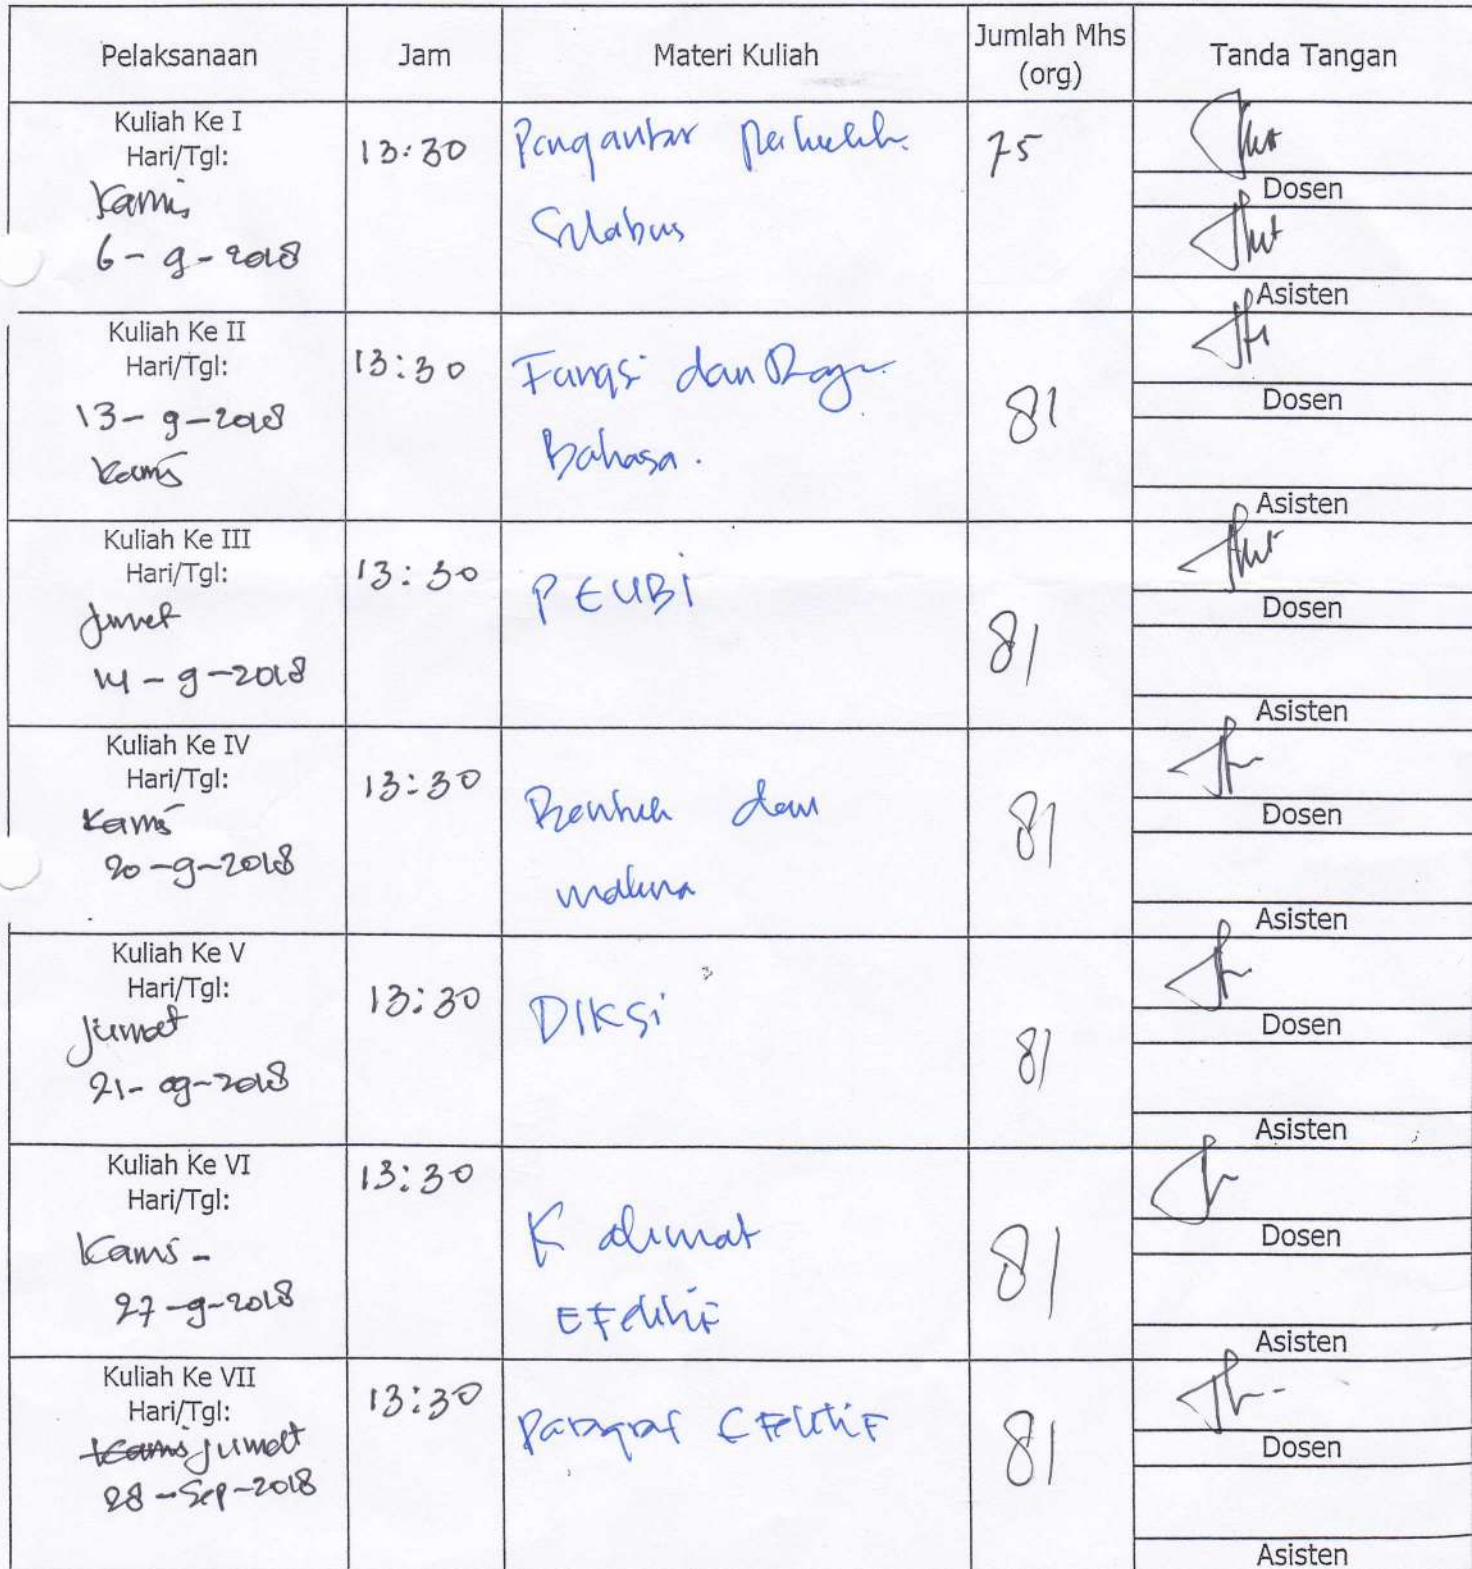 Pelaksanaan
Jam
Materi Kuliah
Jumlah Mhs
(org)
Tanda Tangan
Kuliah Ke I
Hari/Tgl:
Kamis
6-9-2018
13:30
Pengantar
Silabus
75
Dosen
Asisten
Kuliah Ke II
Hari/Tgl:
13-9-2018
Kamis
13:30
Fungsi dan
Bahasa.
81
Dosen
Asisten
Kuliah Ke III
Hari/Tgl:
Jumat
14-9-2018
13:30
PEUBI
81
Dosen
Asisten
Kuliah Ke IV
Hari/Tgl:
Kamis
20-9-2018
13:30
Bentuk dan
makna
81
Dosen
Asisten
Kuliah Ke V
Hari/Tgl:
Jumat
21-09-2018
13:30
DIKSi
81
Dosen
Asisten
Kuliah Ke VI
Hari/Tgl:
Kamis -
27-9-2018
13:30
Kalimat
EFektiF
81
Dosen
Asisten
Kuliah Ke VII
Hari/Tgl:
Kamis Jumat
28-Sep-2018
13:30
Paragraf EFektiF
81
Dosen
Asisten